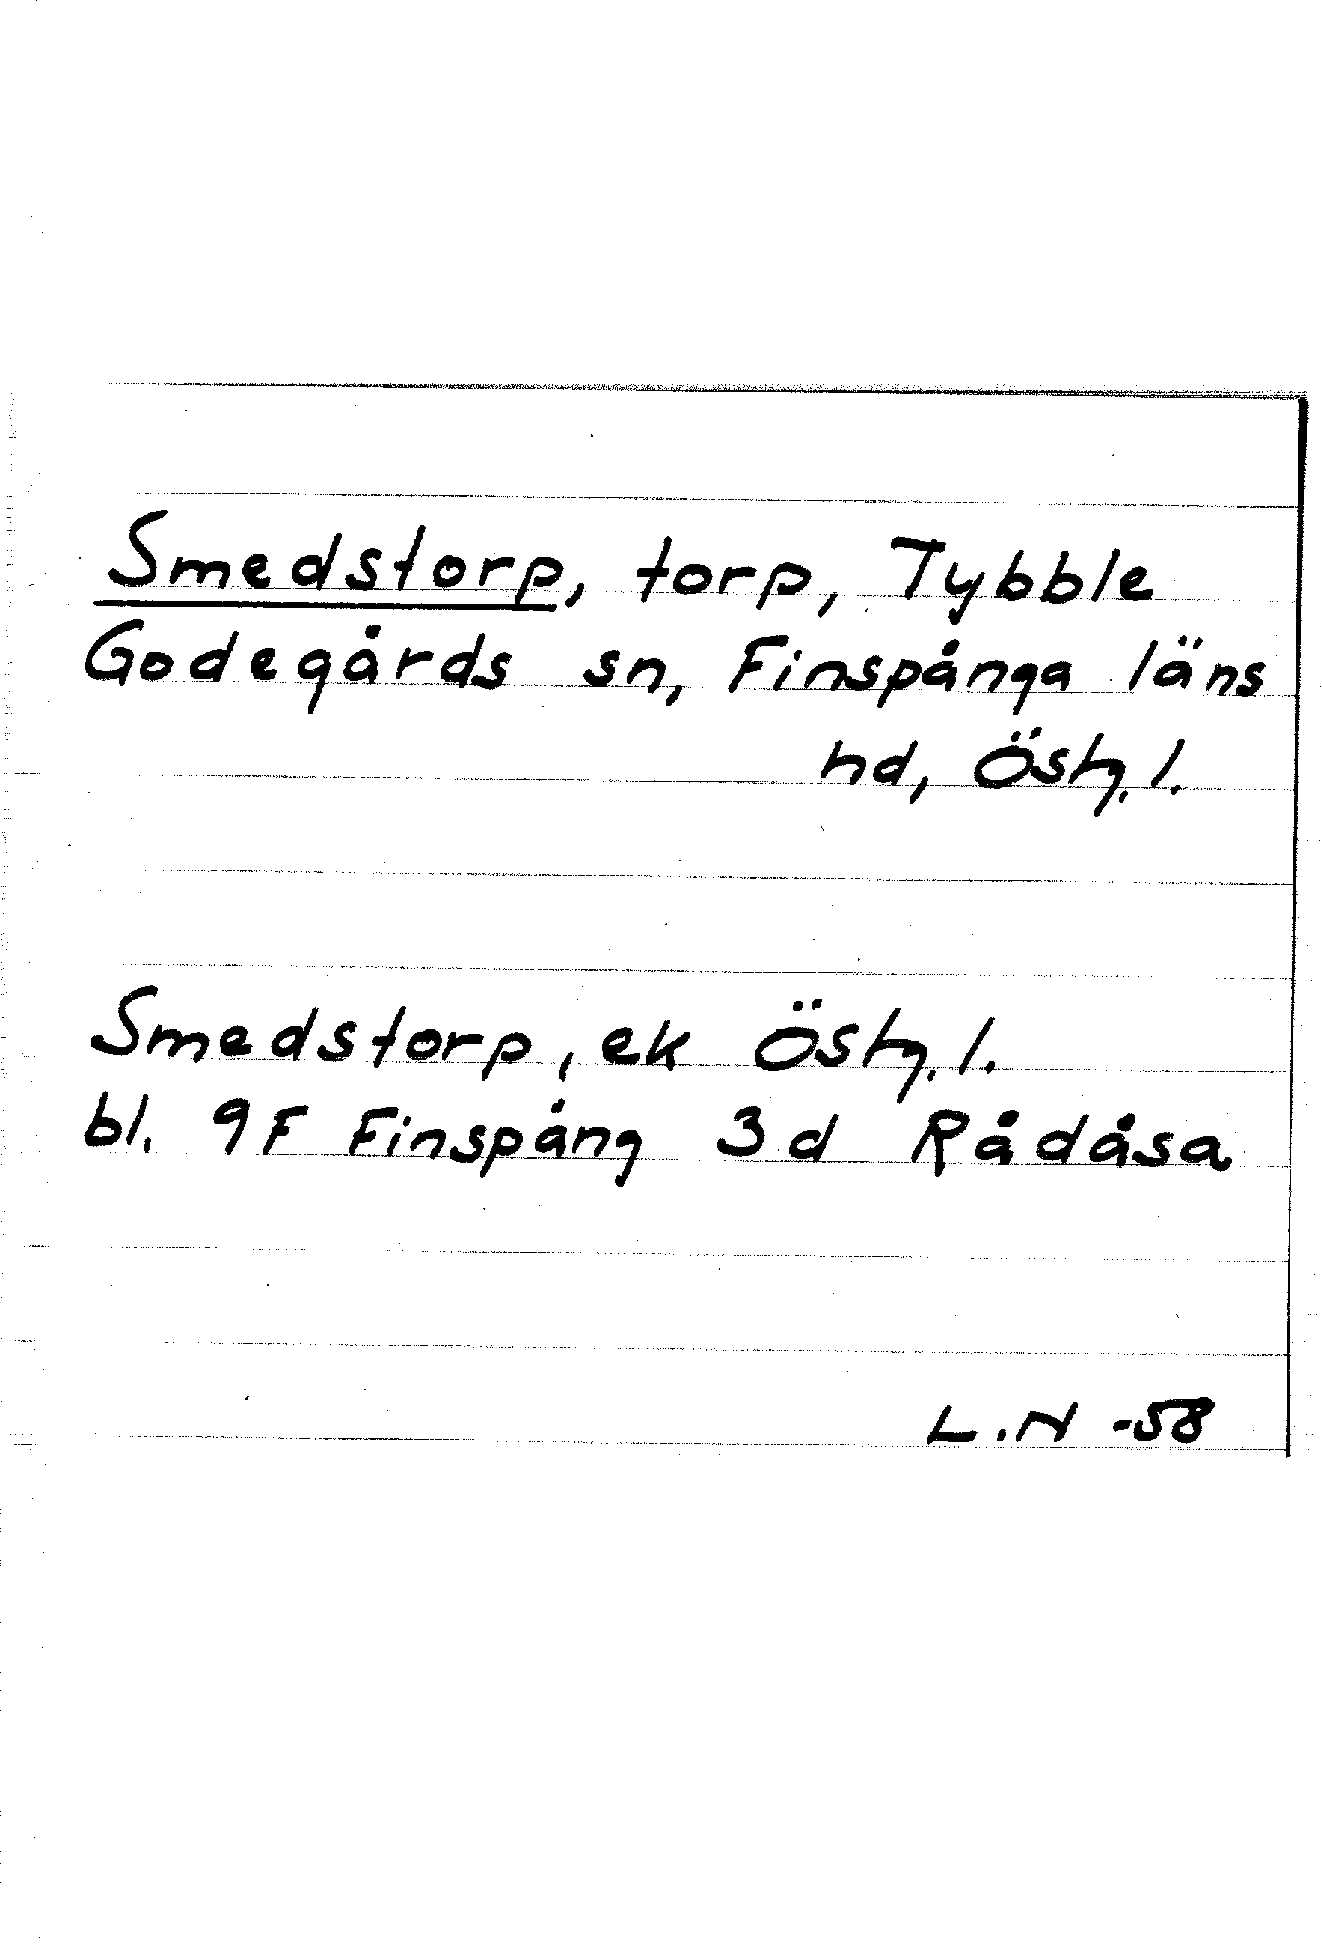 Smedstorp, torp, Tybble
Godegårds sn, Finspånga läns
hd, Östg. l.
Smedstorp, ek Östg. l.
bl. 9F Finspång 3d Rådåsa
L.N -58